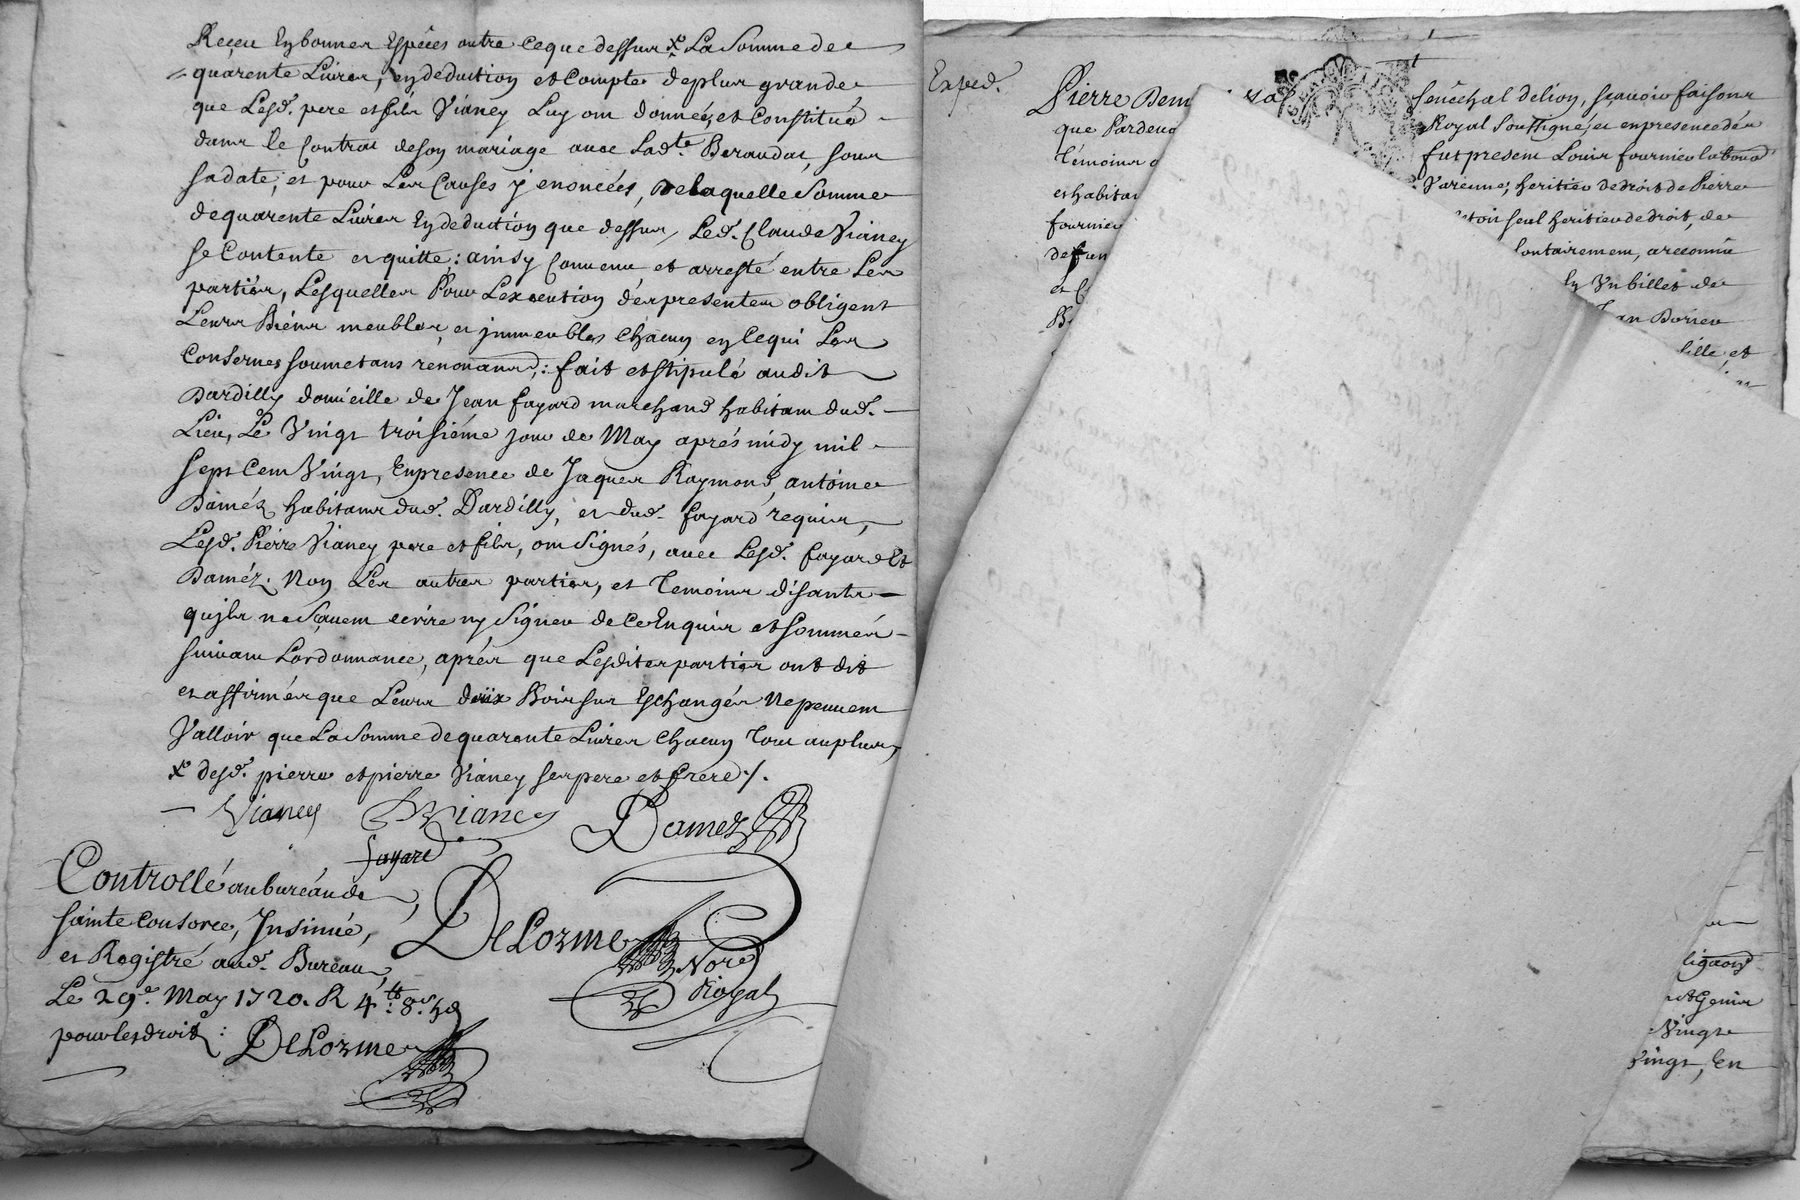 Receu en bonnes Espéces outre ce que dessus x La Somme de
quarente Livres, en deduction et compte de plus grande
que Lesd. pere et fils Vianey Luy ont donnée, et Constitué
dans le Contrat de son mariage avec Lad.te Beraudat, sous
sa date, et pour Les Causes y enoncées, De laquelle Somme
de quarente Livres En deduction que dessus, Led. Claude Vianey
se Contente et quitte: ainsy Convenu et arresté entre Les
parties, Lesquelles Pour L'execution des presentes obligent
Leurs Biéns meubles, et jmmeubles Chacun en Ce qui Les
Conserne, soumetans renonçans,: fait et stipulé audit
Dardilly domiçille de Jean fayard marchand habitant dud.
Lieu, Le Vingt troisiéme jour de May aprés midy mil
sept Cent Vingt, En presence de Jaques Raymond, antoine
Daméz habitans dud. Dardilly, et dud. fayard requis,
Lesd. Pierre Vianey pere et fils, ont signés, avec Lesd. fayard Et
Daméz. Non Les autres parties, et Temoins disants
qujls ne sçavent écrire ny signer de ce Enquis et sommés
suivant Lordonnance, aprés que Lesdites parties ont dit
et affirmés que Leurs deux Bois sus Eschangés Ne peuvent
Valloir que La Somme de quarente Livres Chacun Tout au plus,
x desd. pierre et pierre Vianey ses pere et frere ./.
Vianey Vianey Damez
fayard
Controllé au buréau de
sainte Consorce, Insinué,
et Registré aud. Bureau,
Le 29e. May 1720. R 4tt. 8s.
pour les droits: DeLorme
DeLorme
No.re
Royal
Exped.
Pierre Dem
Sénéchal de Lion, sçavoir faisons
que Pardeva
Royal Soussigné, et en presence dés
Témoins
fut present Louis fournier
et habitan
Varenne, heritier de droit de Pierre
fournier
seul heritier de droit, de
defun
lontairement, a reconnu
et
Un billet de
Jean Dorier
ille, et
Vingt
Vingt, En